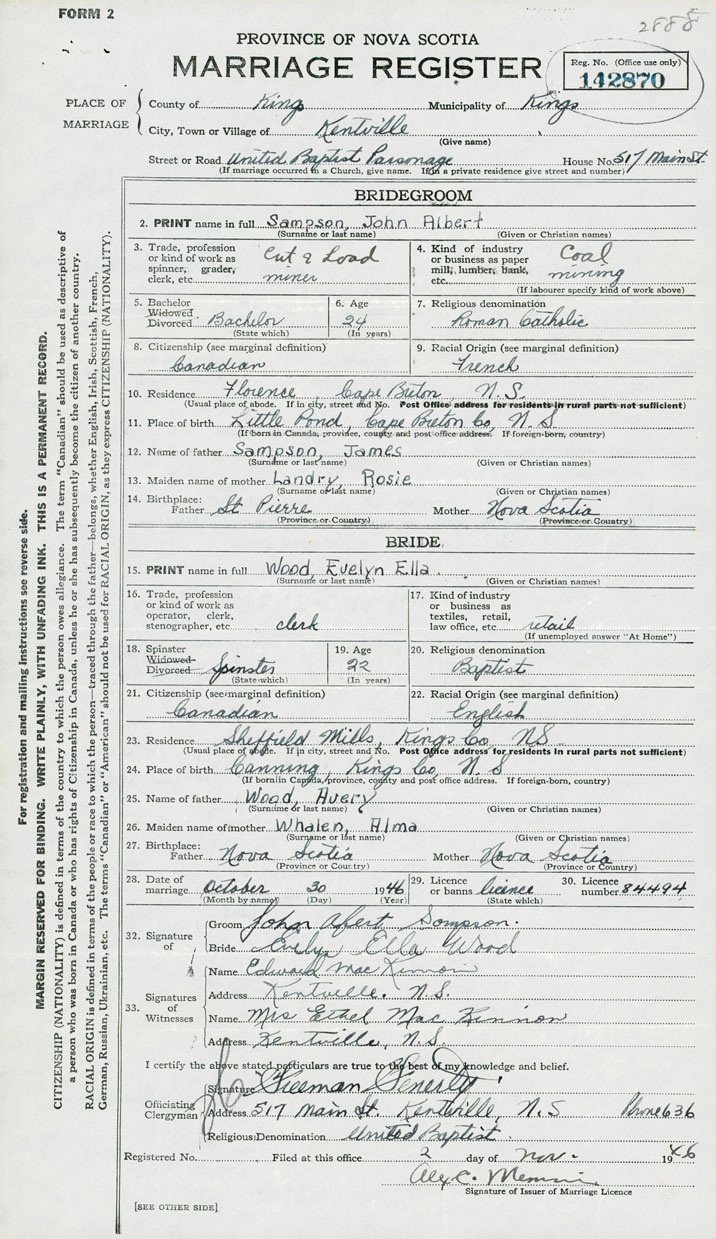 FORM 2
2888
PROVINCE OF NOVA SCOTIA
MARRIAGE REGISTER
Reg. No. (Office use only)
142870
PLACE OF MARRIAGE
County of King Municipality of Kings
City, Town or Village of Kentville
(Give name)
Street or Road United Baptist Parsonage House No. 517 Main St.
(If marriage occurred in a Church, give name. If in a private residence give street and number)
BRIDEGROOM
2. PRINT name in full Sampson, John Albert
(Surname or last name) (Given or Christian names)
3. Trade, profession or kind of work as spinner, grader, clerk, etc. Cut & Load miner
4. Kind of industry or business as paper mill, lumber, bank, etc. Coal mining
(If labourer specify kind of work above)
5. Bachelor Widowed Divorced Bachelor
(State which)
6. Age 24
(In years)
7. Religious denomination
Roman Catholic
8. Citizenship (see marginal definition)
Canadian
9. Racial Origin (see marginal definition)
French
10. Residence Florence, Cape Breton, N.S.
(Usual place of abode. If in city, street and No. Post Office address for residents in rural parts not sufficient)
11. Place of birth Little Pond, Cape Breton Co, N.S
(If born in Canada, province, county and post office address. If foreign-born, country)
12. Name of father Sampson, James
(Surname or last name) (Given or Christian names)
13. Maiden name of mother Landry, Rosie
(Surname or last name) (Given or Christian names)
14. Birthplace: Father St Pierre Mother Nova Scotia
(Province or Country) (Province or Country)
BRIDE
15. PRINT name in full Wood, Evelyn Ella.
(Surname or last name) (Given or Christian names)
16. Trade, profession or kind of work as operator, clerk, stenographer, etc. clerk
17. Kind of industry or business as textiles, retail, law office, etc. retail
(If unemployed answer "At Home")
18. Spinster Widowed Divorced Spinster
(State which)
19. Age 22
(In years)
20. Religious denomination
Baptist
21. Citizenship (see marginal definition)
Canadian
22. Racial Origin (see marginal definition)
English
23. Residence Sheffield Mills, Kings Co, N.S.
(Usual place of abode. If in city, street and No. Post Office address for residents in rural parts not sufficient)
24. Place of birth Canning, Kings Co, N.S
(If born in Canada, province, county and post office address. If foreign-born, country)
25. Name of father Wood, Avery
(Surname or last name) (Given or Christian names)
26. Maiden name of mother Whalen, Alma
(Surname or last name) (Given or Christian names)
27. Birthplace: Father Nova Scotia Mother Nova Scotia
(Province or Country) (Province or Country)
28. Date of marriage October 30 1946
(Month by name) (Day) (Year)
29. Licence or banns licence
(State which)
30. Licence number 84494
32. Signature of
Groom John Albert Sampson.
Bride Evelyn Ella Wood
33. Signatures of Witnesses
Name Edward MacKinnon
Address Kentville. N.S.
Name Mrs Ethel MacKinnon
Address Kentville, N.S.
I certify the above stated particulars are true to the best of my knowledge and belief.
Officiating Clergyman
Signature Freeman Fenerty
Address 517 Main St. Kentville, N.S Phone 636
Religious Denomination United Baptist.
Registered No. Filed at this office 2 day of Nov. 1946
Signature of Issuer of Marriage Licence
[SEE OTHER SIDE]
For registration and mailing instructions see reverse side.
MARGIN RESERVED FOR BINDING. WRITE PLAINLY, WITH UNFADING INK. THIS IS A PERMANENT RECORD.
CITIZENSHIP (NATIONALITY) is defined in terms of the country to which the person owes allegiance. The term "Canadian" should be used as descriptive of
a person who was born in Canada or who has rights of Citizenship in Canada, unless he or she has subsequently become the citizen of another country.
RACIAL ORIGIN is defined in terms of the people or race to which the person—traced through the father—belongs, whether English, Irish, Scottish, French,
German, Russian, Ukrainian, etc. The terms "Canadian" or "American" should not be used for RACIAL ORIGIN, as they express CITIZENSHIP (NATIONALITY).